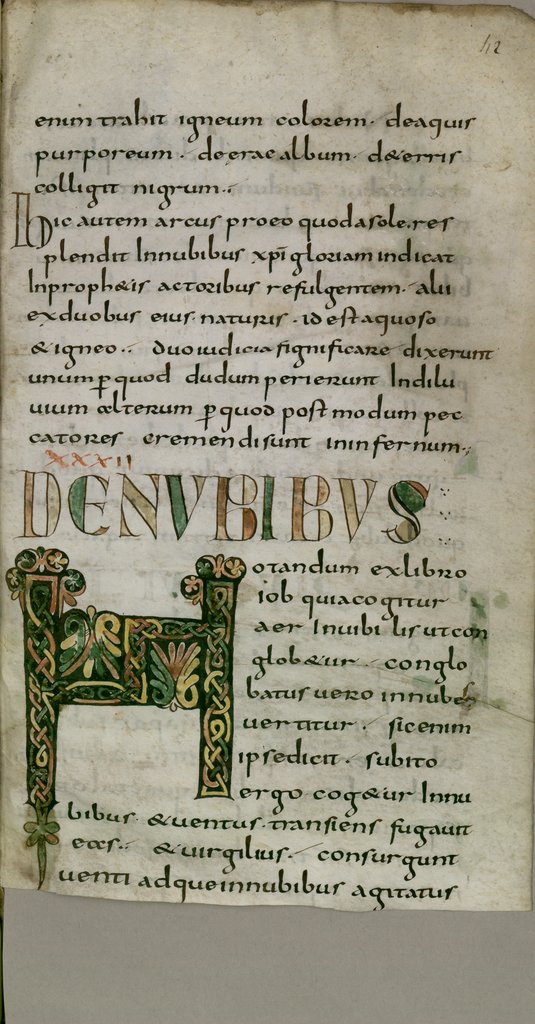 42
enim trahit igneum colorem · deaquis
purporeum · deerae album · de&erris
colligit nigrum ·,
hic autem arcus proeo quodasole res
plendit Innubibus xp̄i gloriam indicat
Inproph&is actoribus refulgentem · alii
exduobus eius naturis · id est aquoso
& igneo ·, duo iudicia significare dixerunt
unum ꝑ quod dudum perierunt Indilu
uium alterum ꝑ quod post modum pec
catores cremendi sunt in infernum ·,
XXXII
DE NVBIBVS
Notandum ex libro
iob quia cogitur
aer Inuibi lis ut con
glob&ur · conglo
batus uero in nubeh
uertitur · sicenim
ipse dicit · subito
ergo cog&ur Innu
bibus · & uentus transiens fugauit
eas ·, & uirgilius · consurgunt
uenti adque innubibus agitatus